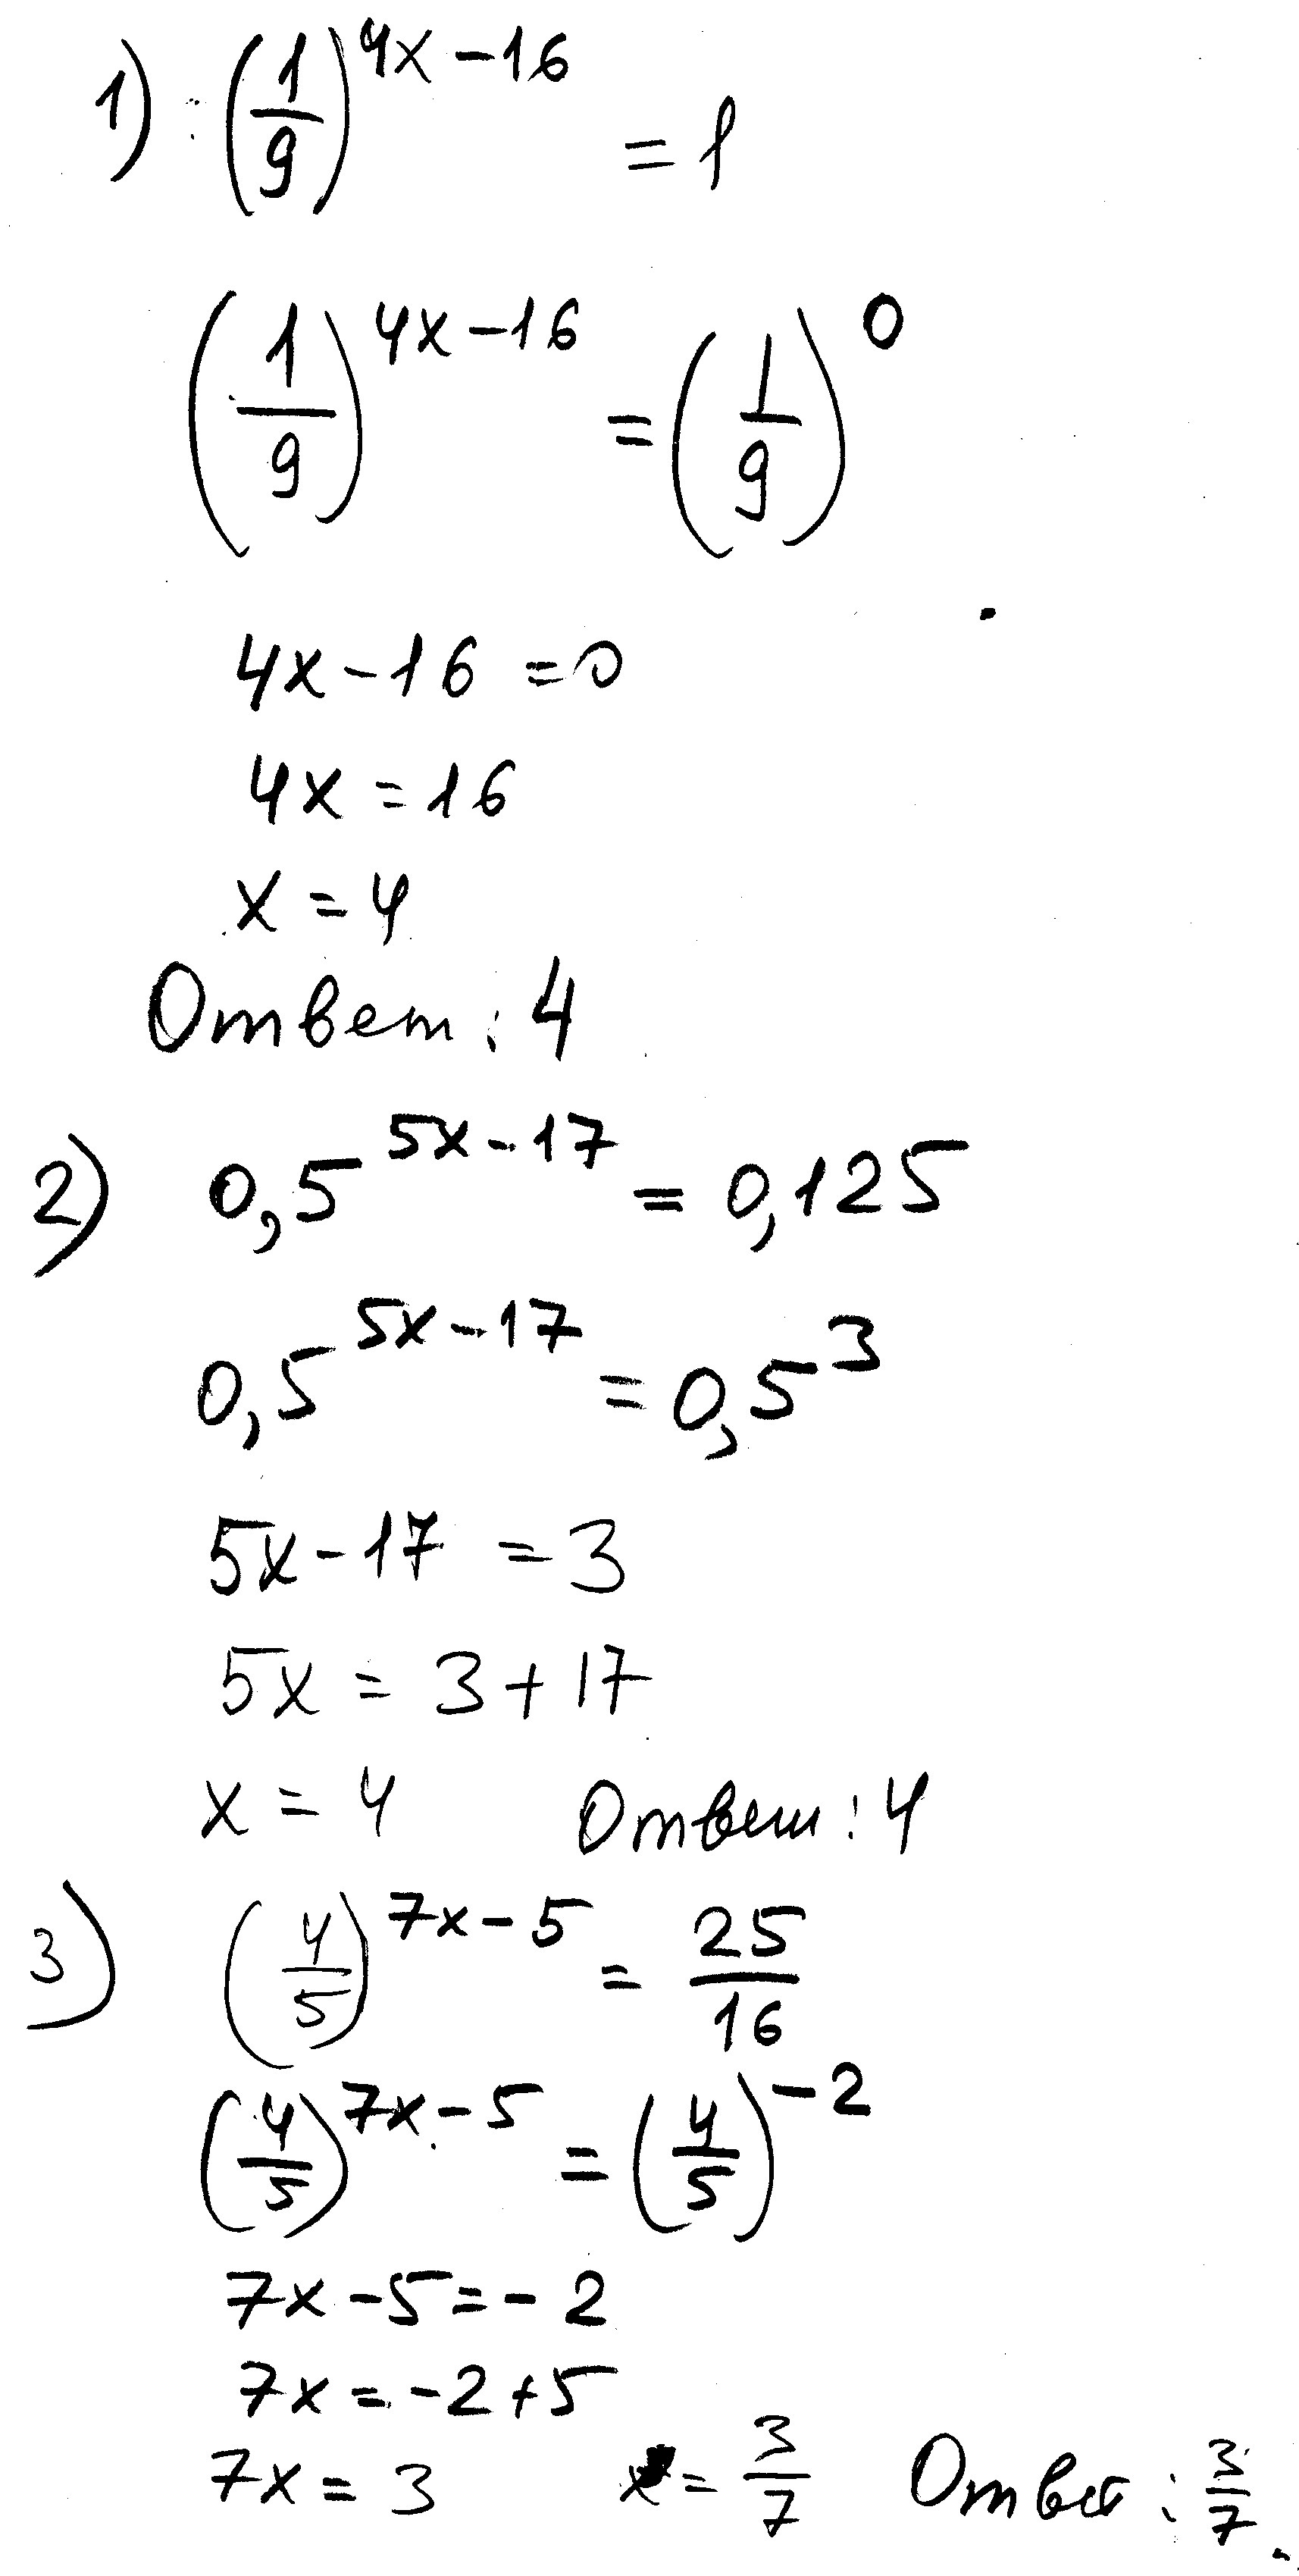 1) (1/9)^(4x-16) = 1
(1/9)^(4x-16) = (1/9)^0
4x-16 = 0
4x = 16
x = 4
Ответ: 4
2) 0,5^(5x-17) = 0,125
0,5^(5x-17) = 0,5^3
5x-17 = 3
5x = 3+17
x = 4 Ответ: 4
3) (4/5)^(7x-5) = 25/16
(4/5)^(7x-5) = (4/5)^(-2)
7x-5=-2
7x = -2+5
7x = 3 x = 3/7 Ответ: 3/7.